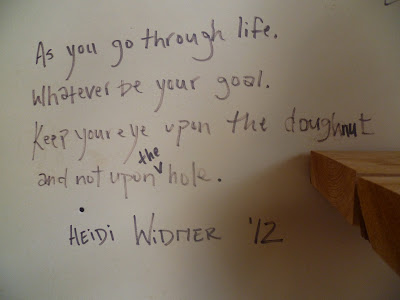 As you go through life.
Whatever be your goal.
Keep your eye upon the doughnut
and not upon the hole.
HEIDI WIDMER '12